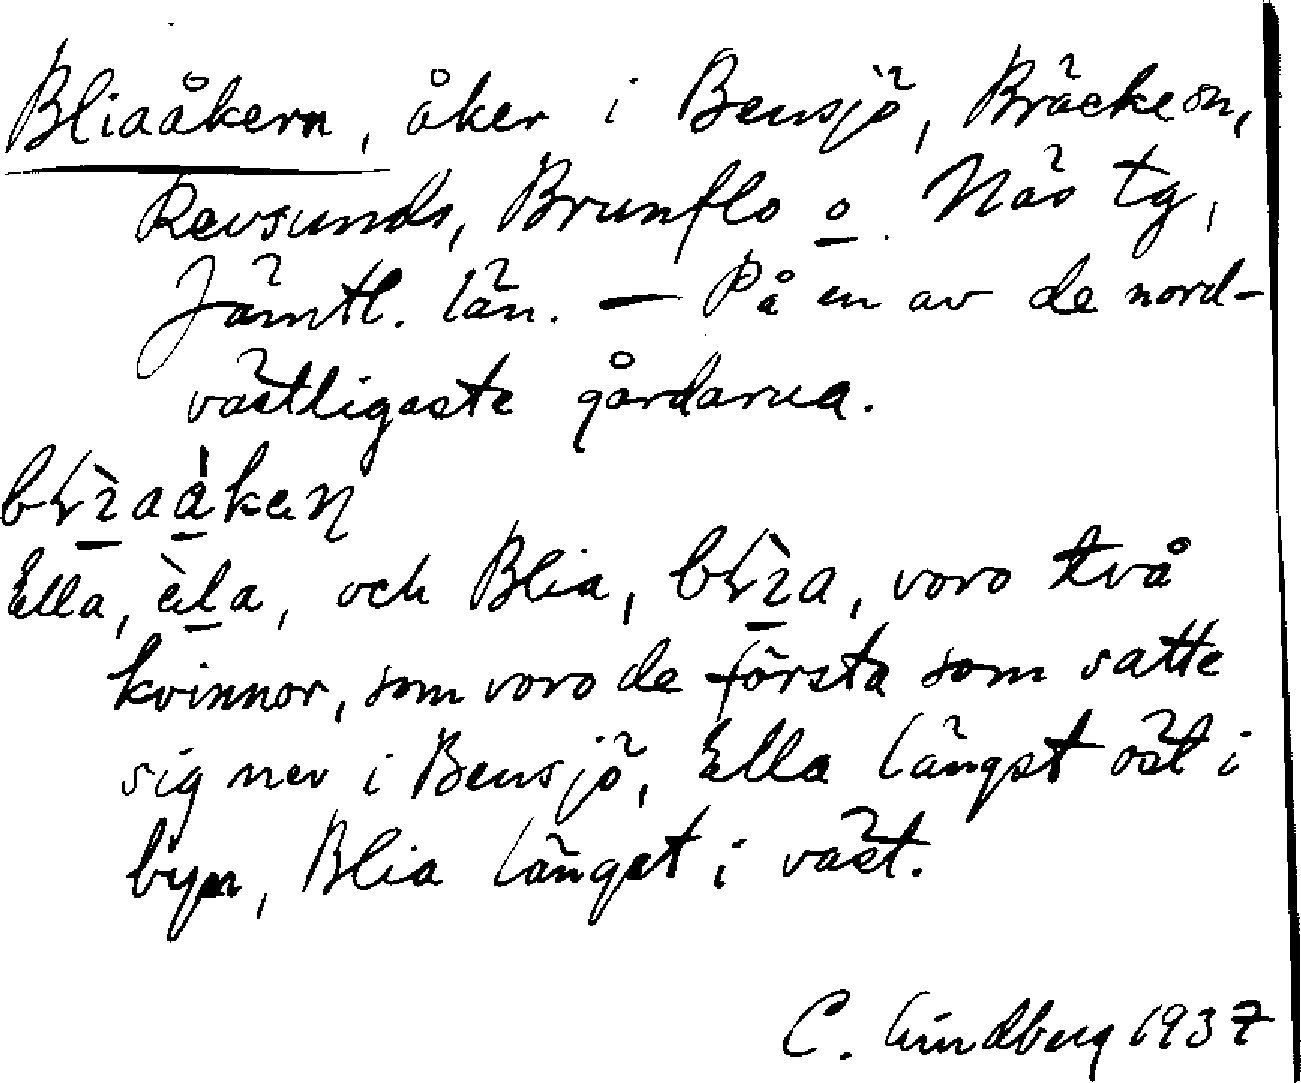 Bliaåkern, åker i Bensjö, Bräcke sn,
Revsunds, Brunflo o. Näs tg,
Jämtl. län. — På en av de nord-
västligaste gårdarna.
Ella, och Blia, voro två
kvinnor, som voro de första som satte
sig ner i Bensjö, Ella längst öst i
byn, Blia längst i väst.
C. Lindberg 1937